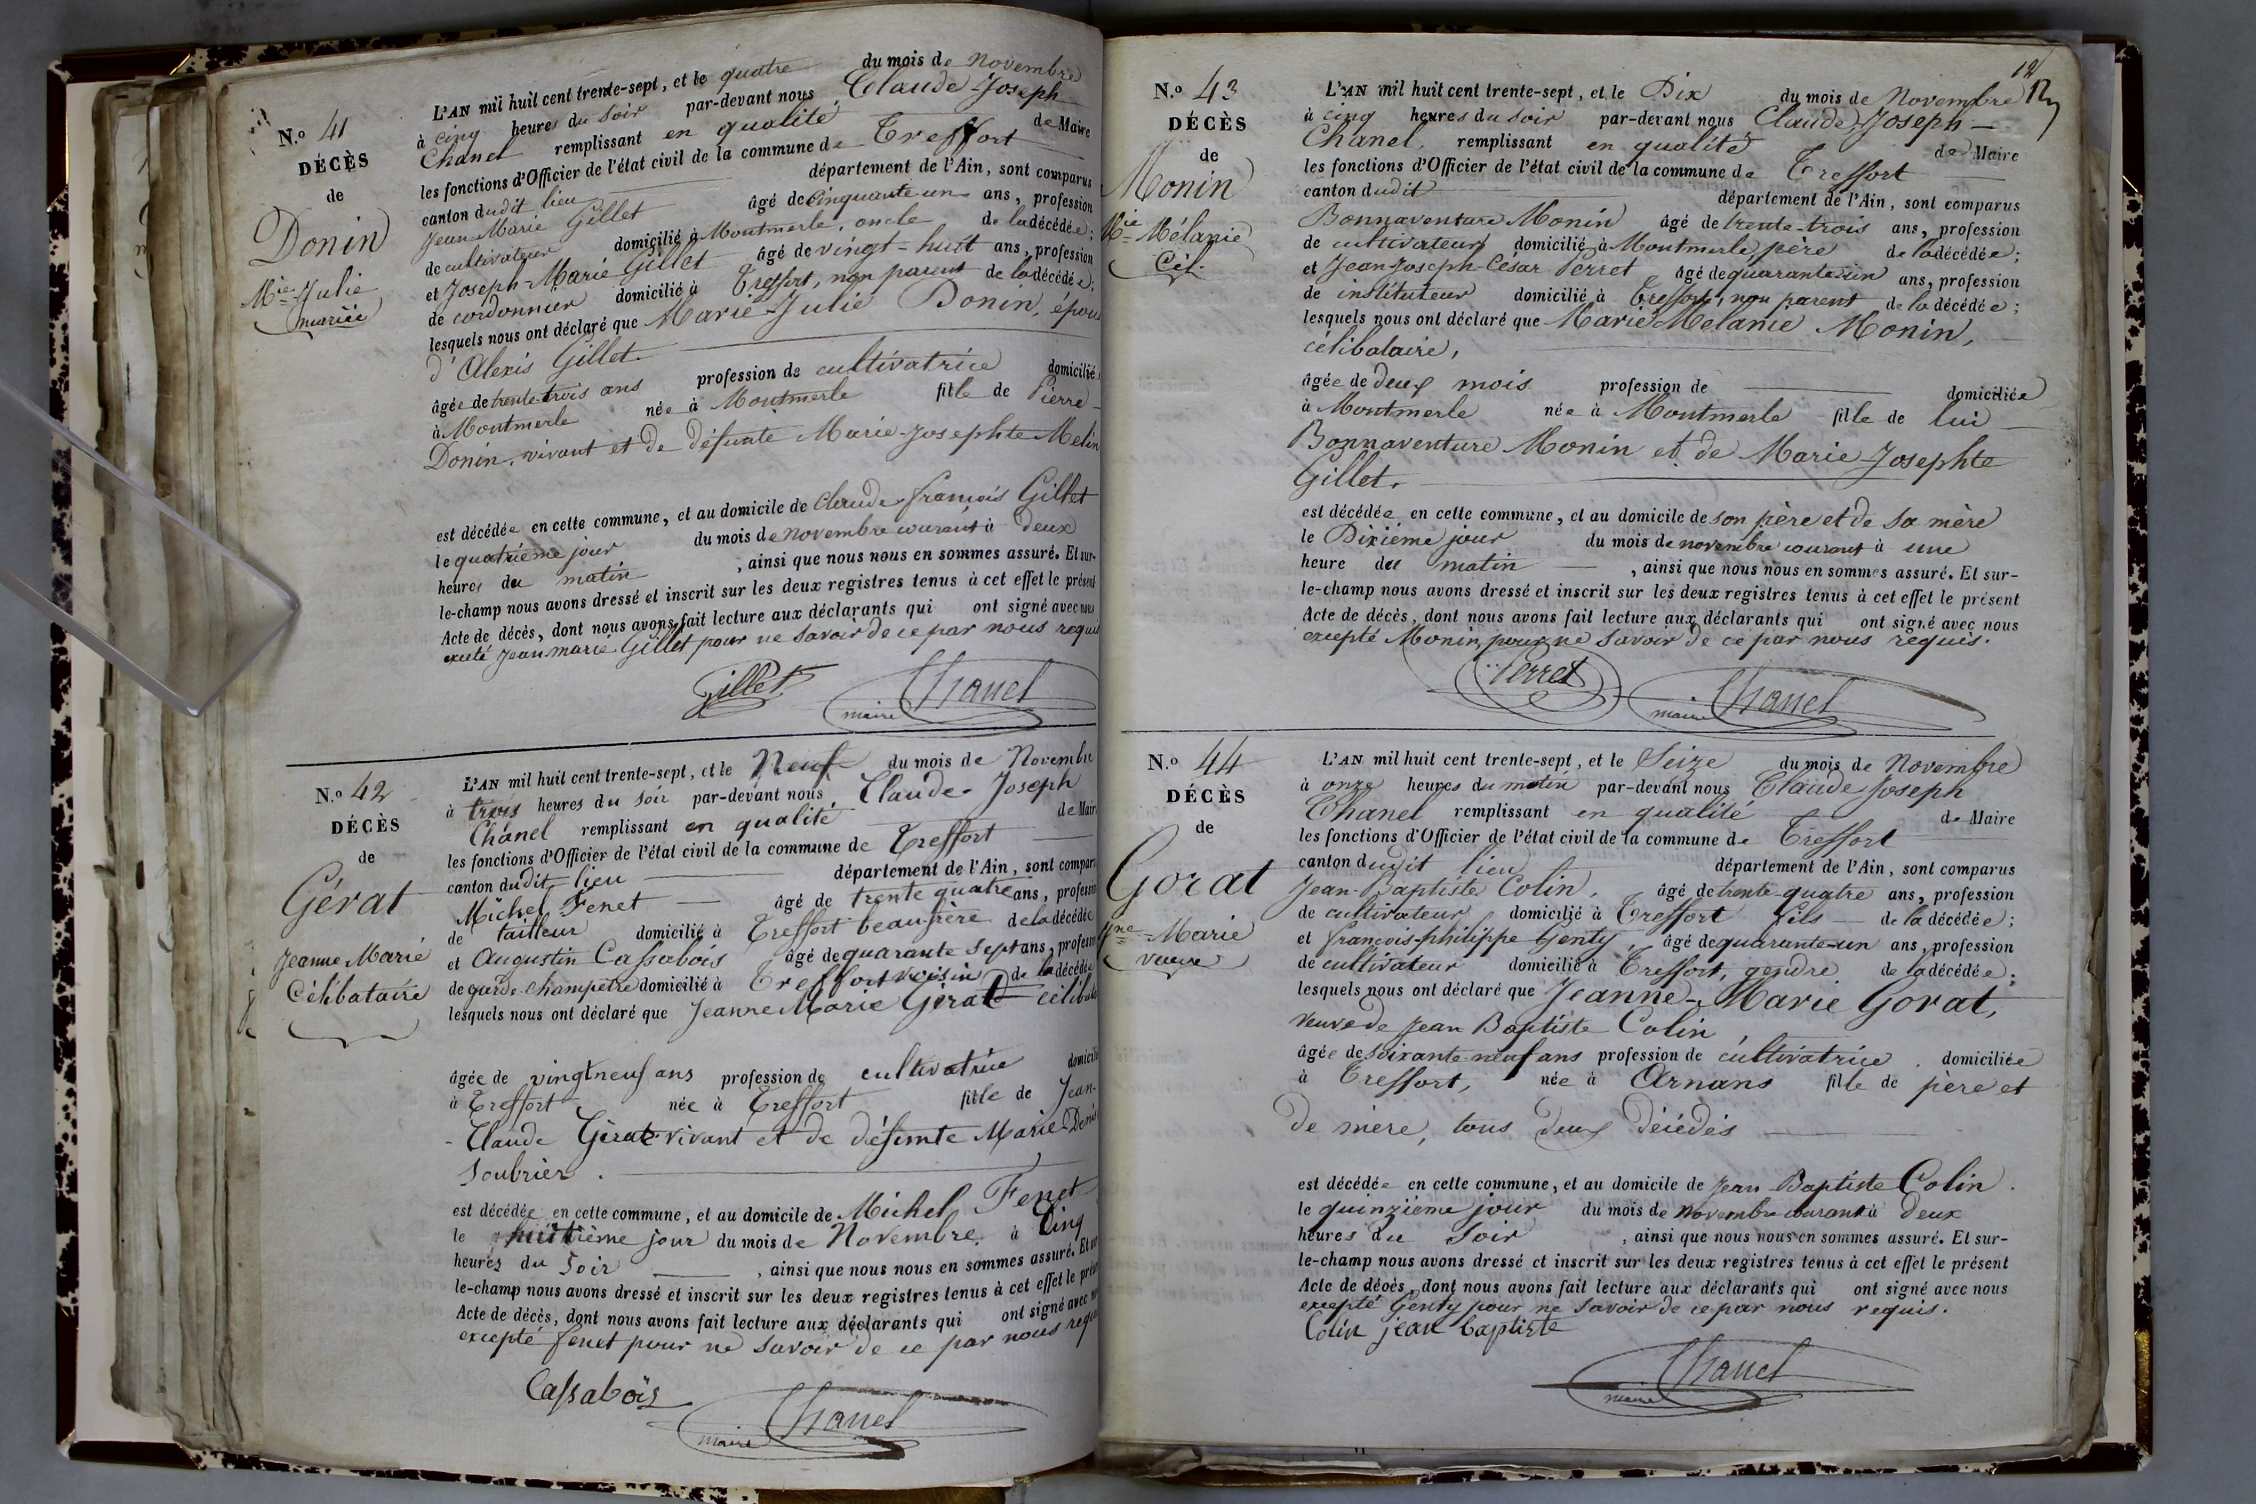 N.o 41
DÉCÈS
de
Donin
Mie Julie
mariée
L'AN mil huit cent trente-sept, et le quatre du mois de Novembre
à cinq heures du soir par-devant nous Claude-Joseph
Chanel remplissant en qualité de Maire
les fonctions d'Officier de l'état civil de la commune de Treffort
canton dudit lieu département de l'Ain, sont comparus
Jean-Marie Gillet âgé de cinquante un ans, profession
de cultivateur domicilié à Montmerle, oncle de la décédée;
et Joseph-Marie Gillet âgé de vingt-huit ans, profession
de cordonnier domicilié à Treffort, non parent de la décédée;
lesquels nous ont déclaré que Marie-Julie Donin, épou
d'Alexis Gillet.
âgée de trente-trois ans profession de cultivatrice domicilié
à Montmerle née à Montmerle fille de Pierre
Donin, vivant et de défunte Marie-Josephte Melin
est décédée en cette commune, et au domicile de Claude-françois Gillet
le quatrième jour du mois de novembre courant à deux
heures du matin , ainsi que nous nous en sommes assuré. Et sur-
le-champ nous avons dressé et inscrit sur les deux registres tenus à cet effet le présent
Acte de décès, dont nous avons fait lecture aux déclarants qui ont signé avec nous
Jean marie Gillet pour ne savoir de ce par nous requis
Gillet
Chanel
maire
N.o 42
DÉCÈS
de
Gérat
Jeanne Marie
Célibataire
L'AN mil huit cent trente-sept, et le Neuf du mois de Novembre
à trois heures du soir par-devant nous Claude-Joseph
Chanel remplissant en qualité de Mair
les fonctions d'Officier de l'état civil de la commune de Treffort
canton dudit lieu département de l'Ain, sont compar
Michel Fenet âgé de trente quatre ans, profess
de tailleur domicilié à Treffort beaufrère de la décédée
et Augustin Cassabois âgé de quarante sept ans, profess
de garde-champêtre domicilié à Treffort voisin de la décédée
lesquels nous ont déclaré que Jeanne Marie Gérat célibata
âgée de vingt neuf ans profession de cultivatrice domicilié
à Treffort née à Treffort fille de Jean-
Claude Gérat vivant et de défunte Marie Denis
Soubrier.
est décédée en cette commune, et au domicile de Michel Fenet
le huitième jour du mois de Novembre à Cinq
heures du Soir , ainsi que nous nous en sommes assuré. Et
le-champ nous avons dressé et inscrit sur les deux registres tenus à cet effet le prés
Acte de décès, dont nous avons fait lecture aux déclarants qui ont signé avec
excepté fenet pour ne savoir de ce par nous requ
Cassabois
Chanel
maire
12
N.o 43
DÉCÈS
de
Monin
Mie Mélanie
Cél.
L'AN mil huit cent trente-sept, et le Dix du mois de Novembre
à cinq heures du soir par-devant nous Claude-Joseph
Chanel remplissant en qualité de Maire
les fonctions d'Officier de l'état civil de la commune de Treffort
canton dudit département de l'Ain, sont comparus
Bonnaventure Monin âgé de trente-trois ans, profession
de cultivateur domicilié à Montmerle père de la décédée;
et Jean-Joseph-César Perret âgé de quarante-un ans, profession
de instituteur domicilié à Treffort, non parent de la décédée;
lesquels nous ont déclaré que Marie Melanie Monin,
célibataire,
âgée de deux mois profession de domiciliée
à Montmerle née à Montmerle fille de lui
Bonnaventure Monin et de Marie-Josephte
Gillet.
est décédée en cette commune, et au domicile de son père et de sa mère
le Dixième jour du mois de novembre courant à une
heure du matin , ainsi que nous nous en sommes assuré. Et sur-
le-champ nous avons dressé et inscrit sur les deux registres tenus à cet effet le présent
Acte de décès, dont nous avons fait lecture aux déclarants qui ont signé avec nous
excepté Monin, pour ne savoir de ce par nous requis.
Perret
Chanel
maire
N.o 44
DÉCÈS
de
Gorat
Jne Marie
veuve
L'AN mil huit cent trente-sept, et le Seize du mois de Novembre
à onze heures du matin par-devant nous Claude Joseph
Chanel remplissant en qualité de Maire
les fonctions d'Officier de l'état civil de la commune de Treffort
canton dudit lieu département de l'Ain, sont comparus
Jean-Baptiste Colin, âgé de trente-quatre ans, profession
de cultivateur domicilié à Treffort fils de la décédée;
et françois-philippe Genty, âgé de quarante-un ans, profession
de cultivateur domicilié à Treffort, gendre de la décédée;
lesquels nous ont déclaré que Jeanne-Marie Gorat,
veuve de Jean Baptiste Colin
âgée de soixante-neuf ans profession de cultivatrice domiciliée
à Treffort, née à Arnans fille de père et
de mère, tous deux décédés
est décédée en cette commune, et au domicile de Jean Baptiste Colin.
le quinzième jour du mois de novembre courant à deux
heures du Soir , ainsi que nous nous en sommes assuré. Et sur-
le-champ nous avons dressé et inscrit sur les deux registres tenus à cet effet le présent
Acte de décès, dont nous avons fait lecture aux déclarants qui ont signé avec nous
excepté Genty pour ne savoir de ce par nous requis.
Colin jean baptiste
Chanel
maire